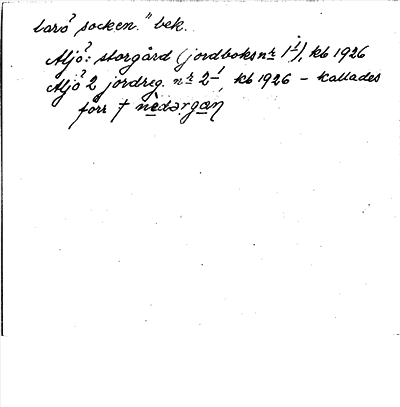 Torö socken." bek.
Aljö: storgård (jordboksnr 1 1), kb 1926
Aljö 2 jordreg. nr 2 1, kb 1926 – kallades
förr † nedərgaŋ